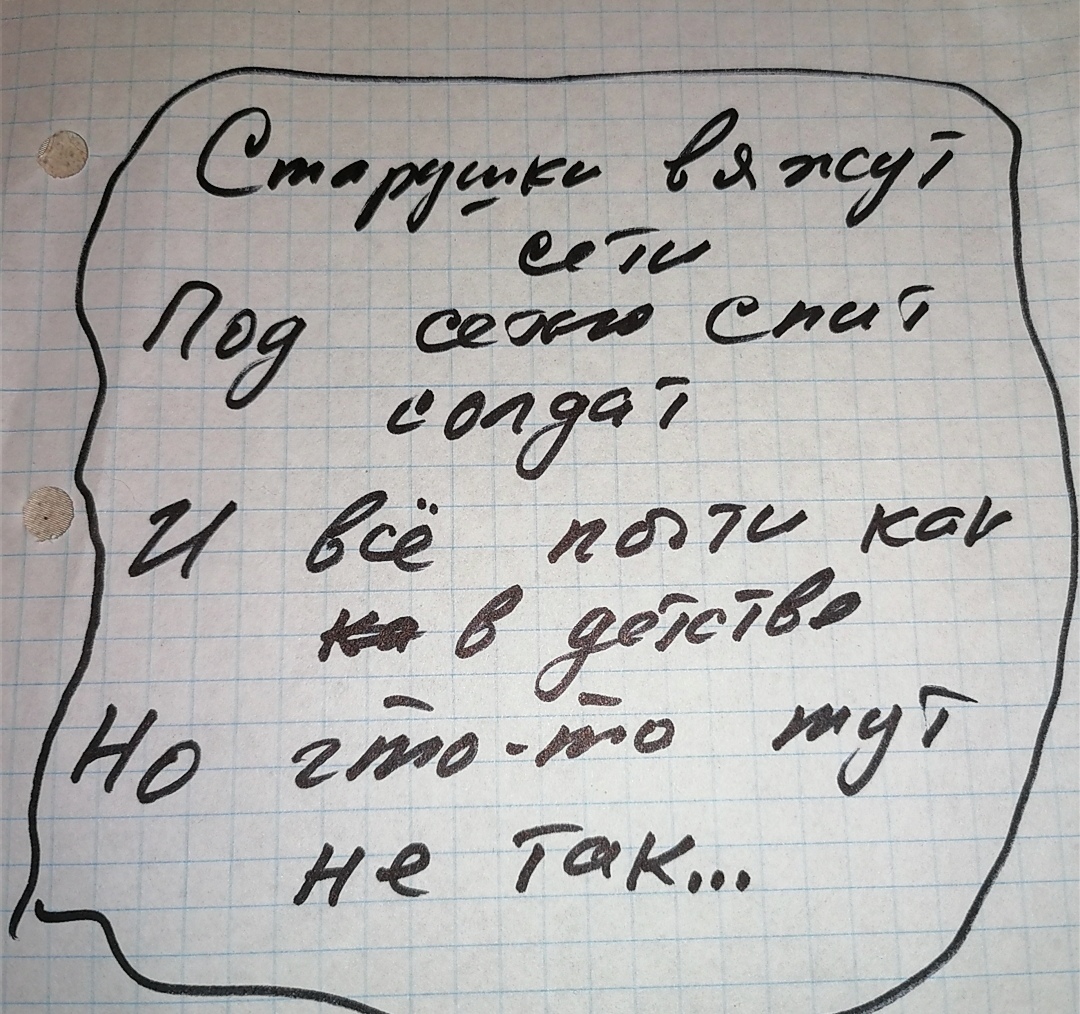 Старушки вяжут
сети
Под сетью спит
солдат
И всё почти как
в детстве
Но что-то тут
не так...